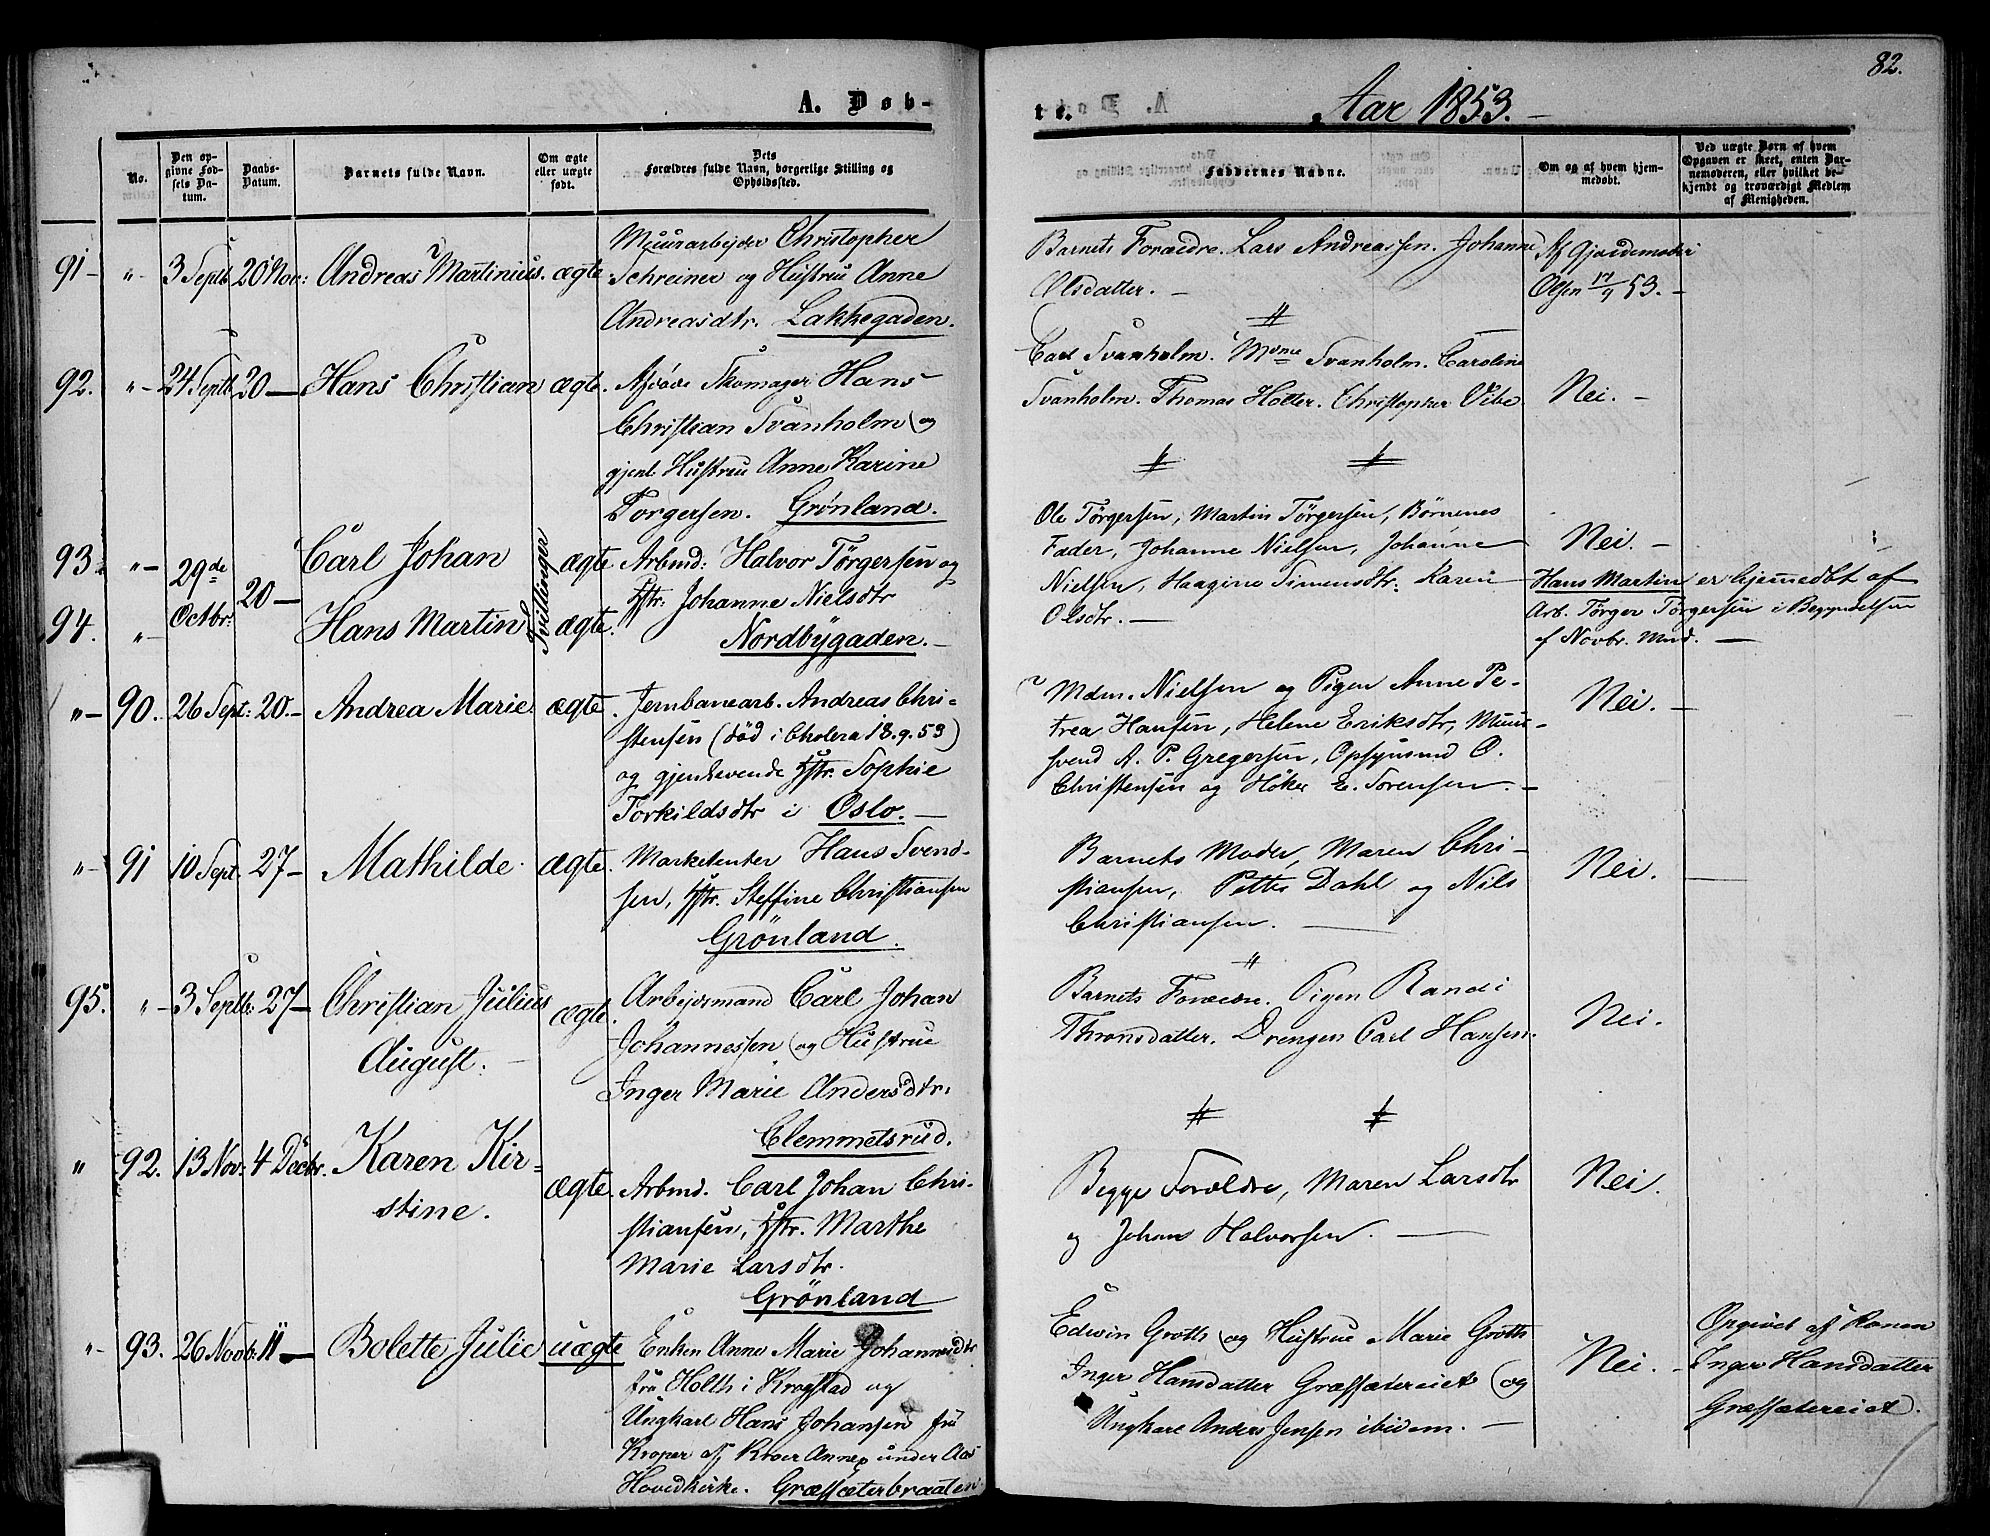 82.
A. Døb-
te.
Aar 1853.
No.
Den op-
givne Fød-
sels Da-
tum.
Daabs-
Datum.
Barnets fulde Navn.
Om ægte
eller uægte
født.
Dets
Forældres fulde Navn, borgerlige Stilling og
Opholdssted.
Faddernes Navne.
Om og af hvem hjem-
medøbt.
Ved uægte Børn af hvem
Opgaven er skeet, enten Bar-
nemoderen, eller hvilket be-
kjendt og troværdigt Medlem
af Menigheden.
91 - " - 3 Septb 20 Nov: Andreas Martinius. ægte.
Muurarbejder Christopher
Schreiner og Hustrue Anne
Andreasdtr. Lakkegaden.
Barnets Foræidre. Lars Andreassen. Johanne
Olsdatter. -
Af Gjordemoder
Olsen 17/9 53. -
92. " - 24 Septb 20 - Hans Christian ægte.
Afdøde Skomager Hans
Christian Svanholm og
gjenl. Hustrue Anne Karine
Torgersen. Grønland.
Carl Svanholm. Mdme Svanholm. Caroline
Svanholm. Thomas Holter. Christopher Vibe
Nei. -
93. " - 29de Octbr: 20 - Carl Johan ægte
94. " - Hans Martin ægte.
Tvillinger
Arbmd: Halvor Törgersen og
Hstr: Johanne Nielsdtr
Nordbÿgaden. -
Ole Törgersen, Martin Törgersen, Börnenes
Fader, Johanne Nielsen, Johanne
Nielsen, Haagine Simensdtr: Karen
Olsdtr. -
Nei. -
Hans Martin er hjemedöbt af
Arb. Törger Törgersen i Begyndelsen
af Novbr. Mnd. -
" - 90. 26 Sept: 20. - Andrea Marie ægte.
Jernbanearb. Andreas Chri-
stensen (død i Cholera 18.9.53)
og gjenlevende Hstr. Sophie
Torkildsdtr i Oslo. -
Mdm. Nielsen og Pigen Anne Pe-
trea Hansen, Helene Eriksdtr, Muur-
svend A. P. Gregersen, Opsynsmd O.
Christensen og Höker E. Sorensen. -
Nei. -
" - 91 10 Sept. 27 - Mathilde. ægte.
Marketenter Hans Svend-
sen, Hstr. Steffine Christiansen
Grönland.
Barnets Moder, Maren Chri-
stiansen, Petter Dahl og Nils
Christiansen. -
Nei. -
95. " - 3 Septb: 27 - Christian Julius
August. - ægte.
Arbejdsmand Carl Johan
Johannessen og Hustrue
Inger Marie Andersdtr:
Clemmetsrud.
Barnets Foræidre. Pigen Randi
Thronsdatter. Drengen Carl Hansen.
Nei.
" 92. 13 Nov: 4 Decbr. Karen Kir-
stine. ægte.
Arbmd. Carl Johan Chri-
stiansen, Hstr. Marthe
Marie Larsdtr.
Grönland
Begge Forældre, Maren Larsdtr
og Johan Halvorsen. -
Nei.
" - 93. 26 Novb: 11 - Bolette Julie uægte
Enken Anne Marie Johannesdtr
fra Holth i Krogstad og
Ungkarl Hans Johansen fra
Kroer Annex under Aas
Hovedkirke. Græssæterbraaten.
Edwin Groth og Hustrue Marie Groth
Inger Hansdatter Græssætereiet og
Ungkarl Anders Jensen ibidem. -
Nei. -
Opgivet af Konen
Inger Hansdatter
Græssætereiet.